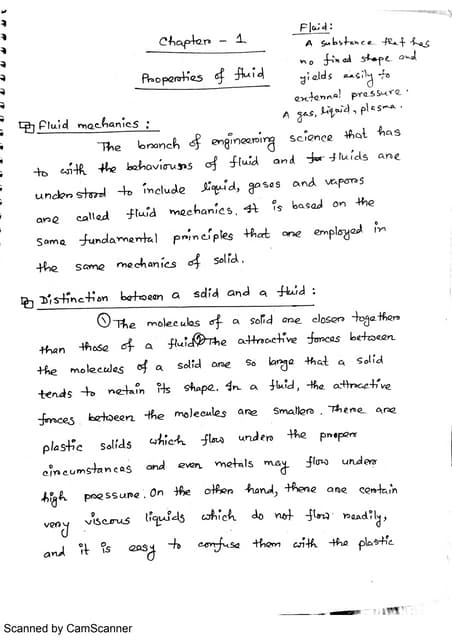 Chapter - 1
Properties of fluid
Fluid:
A substance that has
no fixed shape and
yields easily to
external pressure.
A gas, liquid, plasma.
Fluid mechanics :
The branch of engineering science that has
to with the behaviours of fluid and fluids are
understood to include liquid, gases and vapors
are called fluid mechanics. It is based on the
same fundamental principles that are employed in
the same mechanics of solid.
Distinction between a solid and a fluid :
① The molecules of a solid are closer together
than those of a fluid ② The attractive forces between
the molecules of a solid are so large that a solid
tends to retain its shape. In a fluid, the attractive
forces between the molecules are smaller. There are
plastic solids which flow under the proper
circumstances and even metals may flow under
high pressure. On the other hand, there are certain
very viscous liquids which do not flow readily,
and it is easy to confuse them with the plastic
Scanned by CamScanner